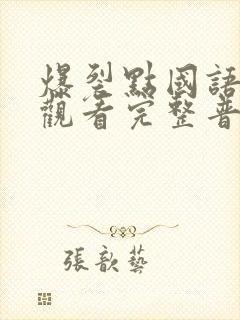 爆裂點國語
觀看完整普
張歆藝